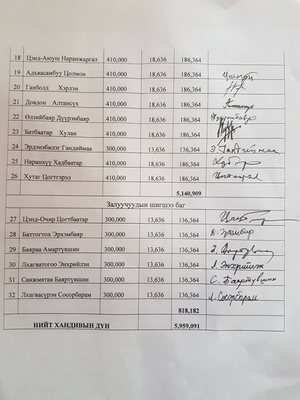 18 Цэнд-Аюуш Наранжаргал 410,000 18,636 186,364
19 Адъяасамбуу Цолмон 410,000 18,636 186,364
20 Ганболд Хэрлэн 410,000 18,636 186,364
21 Довдон Алтансүх 410,000 18,636 186,364
22 Өлзийбаяр Дүүрэнбаяр 410,000 18,636 186,364
23 Батбаатар Хулан 410,000 18,636 186,364
24 Эрдэнэбилэг Гандиймаа 300,000 13,636 136,364 Э. Гандиймаа
25 Наранхүү Хадбаатар 410,000 18,636 186,364
26 Хутаг Цогтгэрэл 410,000 18,636 186,364
5,140,909
Залуучуудын шигшээ баг
27 Цэнд-Очир Цогтбаатар 300,000 13,636 136,364
28 Баттогтох Эрхэмбаяр 300,000 13,636 136,364
29 Баяраа Амартүвшин 300,000 13,636 136,364
30 Лхагватогоо Энхрийлэн 300,000 13,636 136,364
31 Санжмятав Баяртүвшин 300,000 13,636 136,364 С. Баяртүвшин
32 Лхагвасүрэн Сосорбарам 300,000 13,636 136,364 Л. Сосорбарам
818,182
НИЙТ ХАНДИВЫН ДҮН 5,959,091